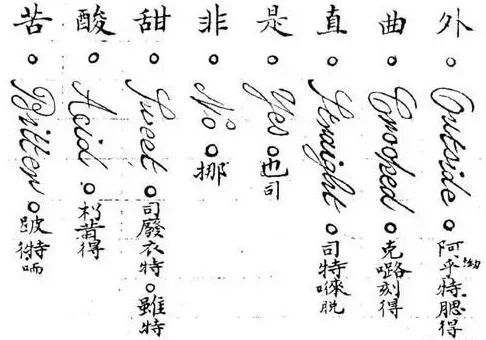 外 ○ Outside ○ 阿乎特腮得
曲 ○ Crooked ○ 克 刻得
直 ○ Straight ○ 司特唻脱
是 ○ Yes ○ 也司
非 ○ No ○ 挪
甜 ○ Sweet ○ 司廢衣特 ○ 雖特
酸 ○ Acid ○ 昔得
苦 ○ Bitter ○